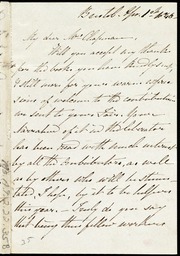 Bristol. Apr. 1st
My dear Mrs Chapman,
Will you accept my thanks
for the book you have
& still more for your warm
sions of welcome to the contributions
we sent to your Fair. Your
Narrative of it in the Liberator
has been read with much interest
by all the Contributors, as well
as by others who will be stimu-
lated I hope, by it to be helpers
this year. - Truly do you say
that being thus fellow workers
35